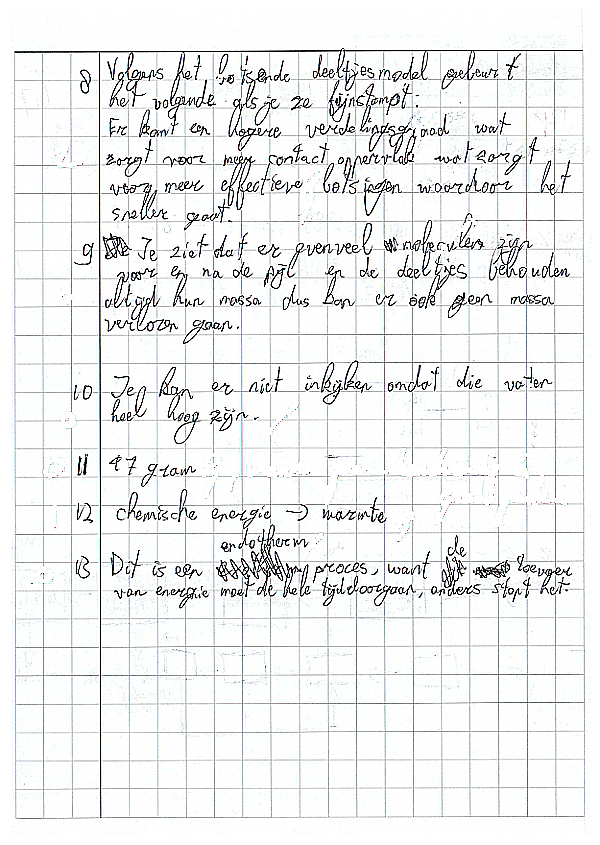 8 Volgens het botsende deeltjesmodel gebeurt
het volgende als je ze fijnstampt:
Er komt een hogere verdelingsgraad wat
zorgt voor meer contactoppervlak wat zorgt
voor meer effectieve botsingen waardoor het
sneller gaat.
9 Je ziet dat er evenveel moleculen zijn
voor en na de pijl en de deeltjes behouden
altijd hun massa dus kan er ook geen massa
verloren gaan.
10 Je kan er niet inkijken omdat die vaten
heel hoog zijn.
11 47 gram
12 chemische energie → warmte
13 Dit is een endotherm proces, want de toevoer
van energie moet de hele tijd doorgaan, anders stopt het.